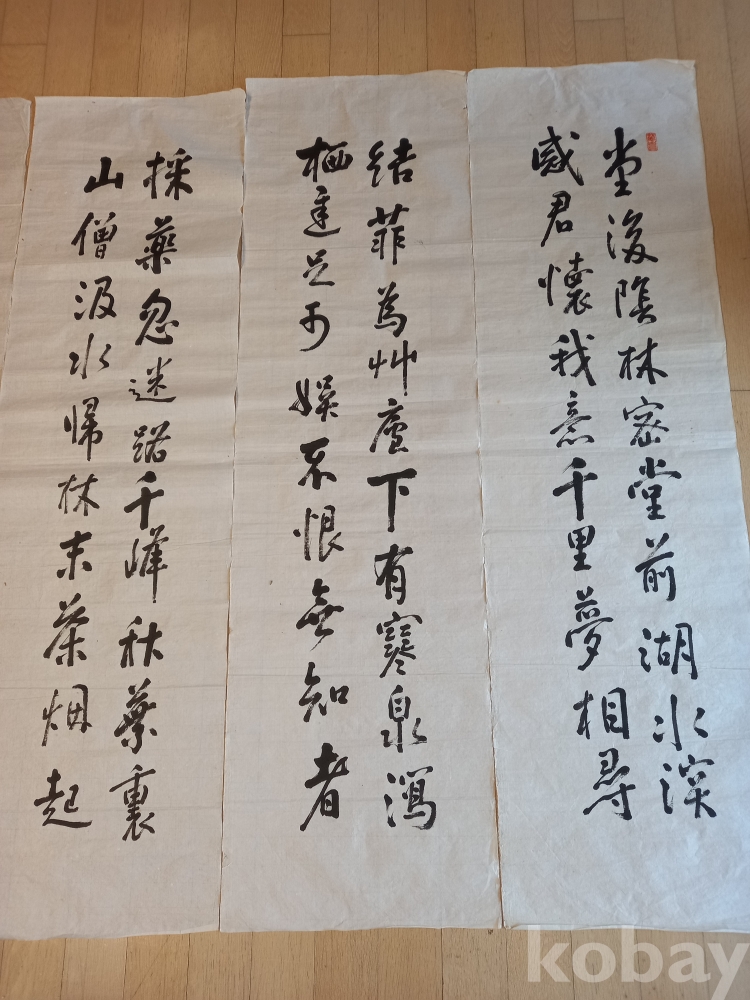 堂後陰林密堂前湖水深
感君懷我意千里夢相尋
結菲為艸廬下有寒泉瀉
栖遲足可娛不恨無知者
採藥忽迷路千峰秋葉裏
山僧汲水歸林末茶烟起
kobay